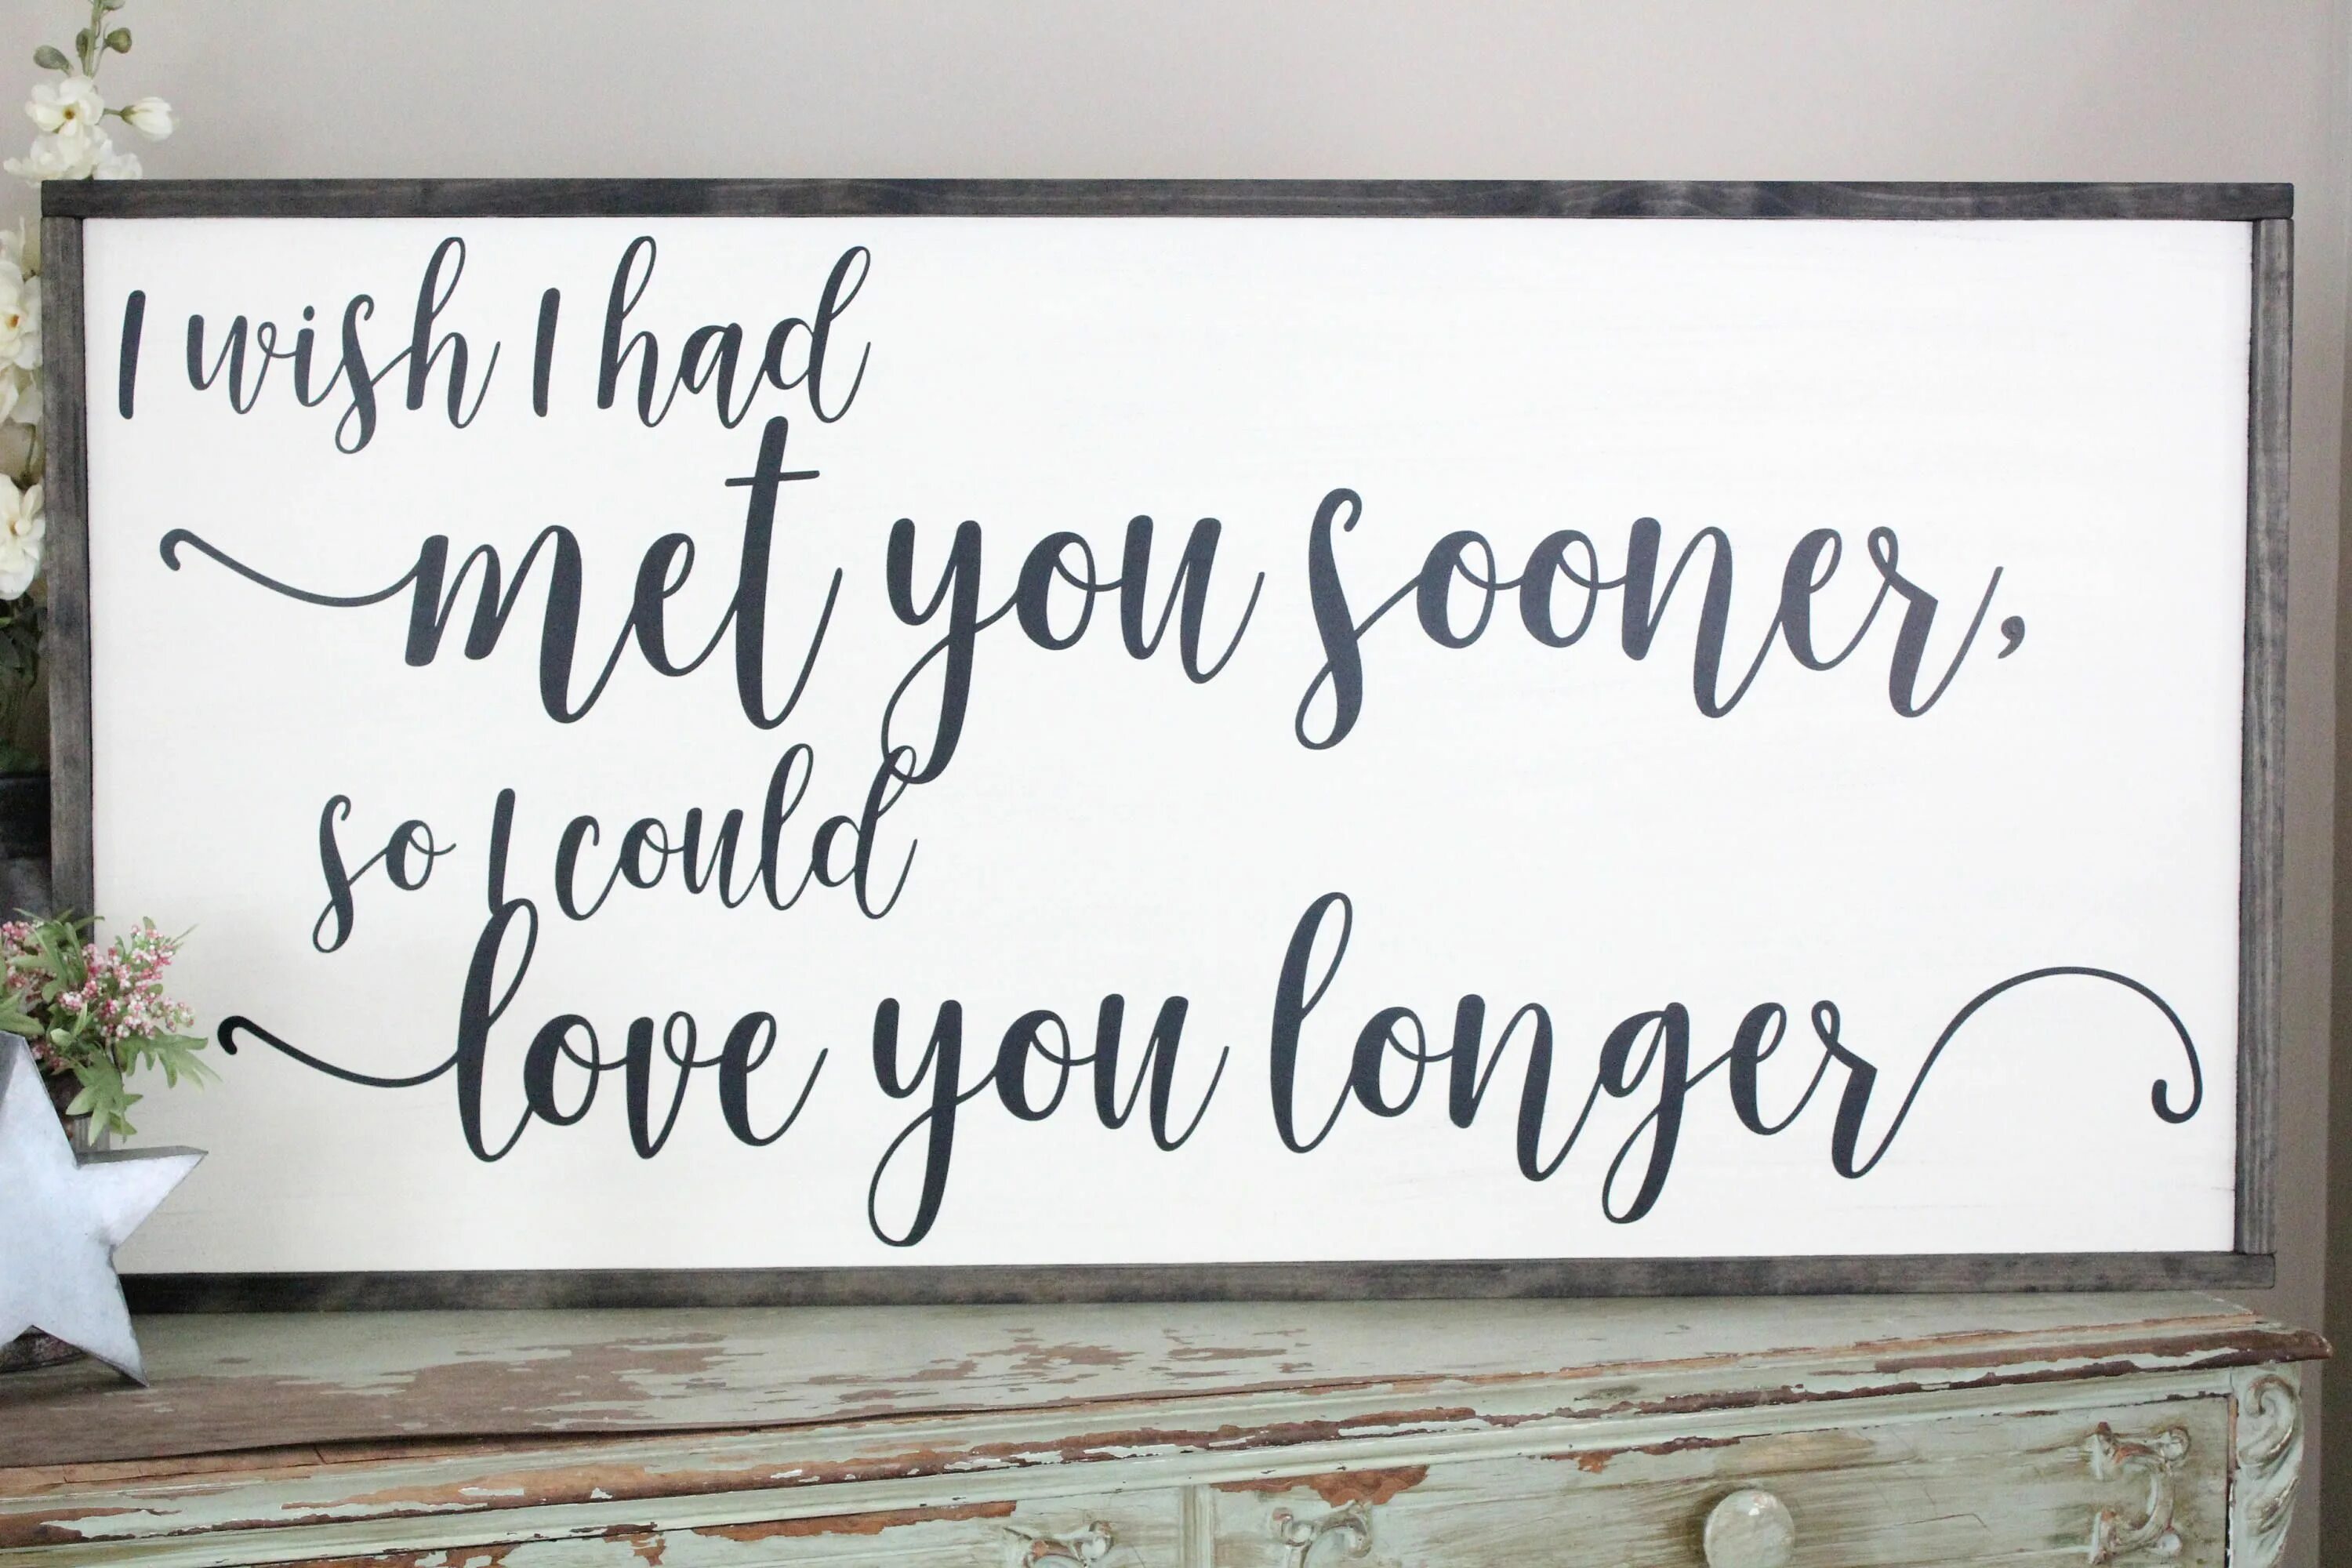 I wish I had
met you sooner,
so I could
love you longer